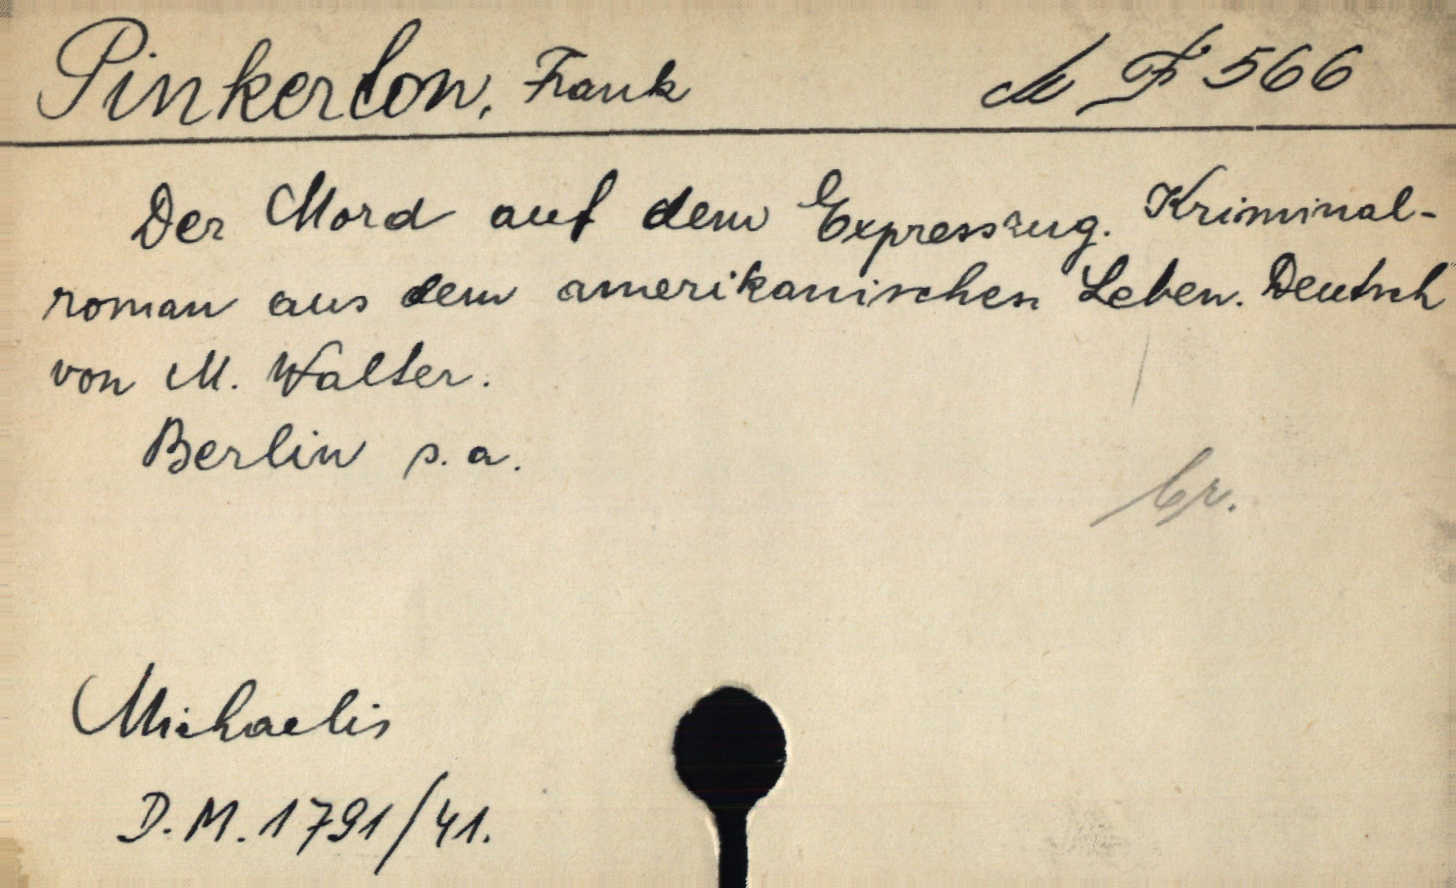 Pinkerton, Frank M F 566
Der Mord auf dem Expresszug. Kriminal-
roman aus dem amerikanischen Leben. Deutsch
von M. Walter.
Berlin s. a.
br.
Michaelis
D. M. 1791/41.